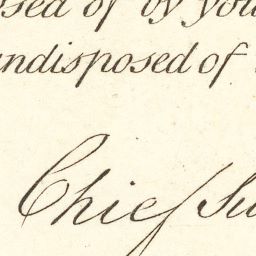 of by you
undisposed of
Chief Su